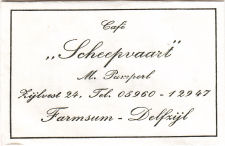 Café
„Scheepvaart"
M. Pumperl
Zijlvest 24, Tel. 05960 - 12947
Farmsum - Delfzijl